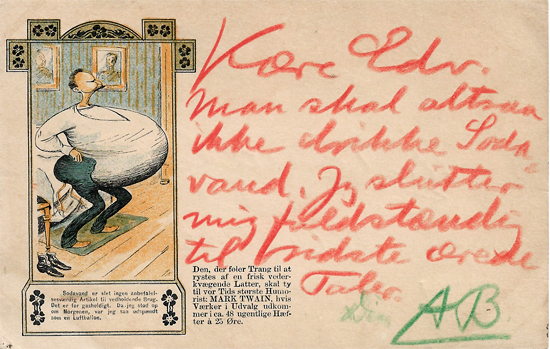 Kære Edv.
Man skal altsaa
ikke drikke Soda-
vand. Jeg slutter
mig fuldstændig
til sidste ærede
Taler.
AB
Sodavand er slet ingen anbefalel-
sesværdig Artikel til vedholdende Brug.
Det er for gasholdigt. Da jeg stod op
om Morgenen, var jeg saa udspændt
som en Luftballon.
Den, der føler Trang til at
rystes af en frisk veder-
kvægende Latter, skal ty
til vor Tids største Humo-
rist: MARK TWAIN, hvis
Værker i Udvalg udkom-
mer i ca. 48 ugentlige Hæf-
ter à 25 Øre.